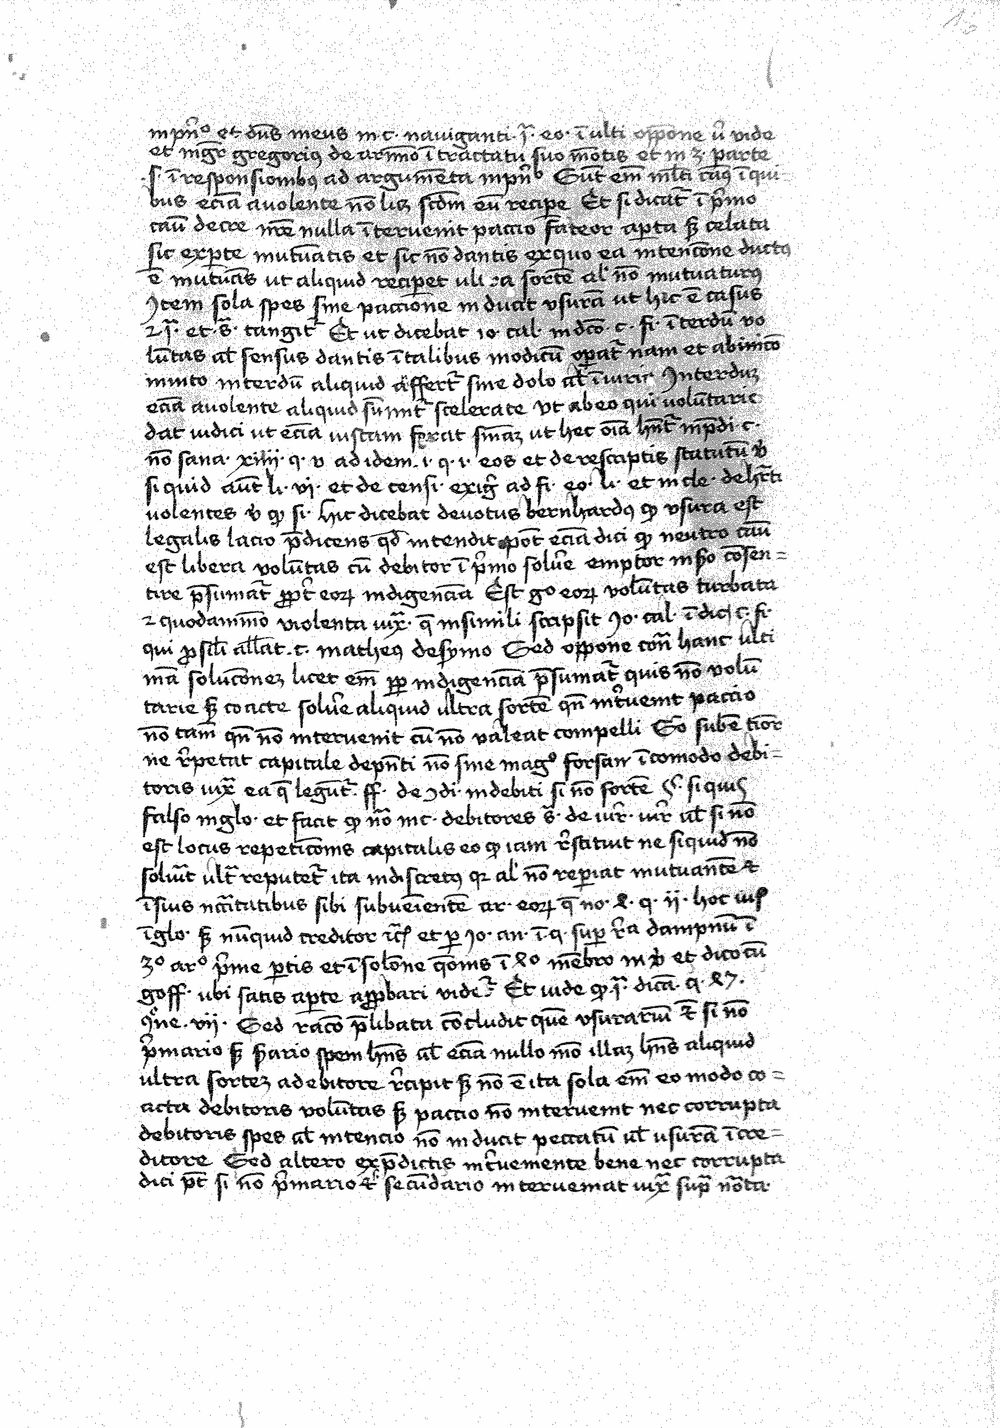 inpn̄º et dn̄s meus in c· nauiganti· ī· eo· ī ulti oppone ū vide
et mgr̄ gregorius de arimīo ī tractatu suo mōtis et in 3 parte
s· ī responsionibus ad argumēta in pn̄º Sūt em̄ ml̄ti cāus ī qui
bus ecia a volente nō li₃ scd̄m eū recipe Et si dicat̄ ī pīmo
cāu decre nr̄e nulla īteruenit paccio fateor apta s₃ celata
sic exp̄te mutuātis et sic nō dantis ex quo ea intencōne ductus
ē mutuās ut aliquid recipet ul̄ sortē al̄ nō mutuaturus
Item sola spes sine paccione inducit vsurā ut hic ē casus
⁊ ī· et s̄· tangit̄ Et ut dicebat io· cal· in dc̄o· c· fi· īterdū vo
lūtas al̄ sensus dantis ī talibus modicū opat̄ nam et ab inico
inuito interdū aliquid affert̄ sine dolo al̄ Interdu₃
ecia a volente aliquid scelerate vt ab eo qui volūtarie
dat iudici ut ecia iustam ferat snīa₃ ut hec oīa hn̄t̄ c·
nō sana· xiiii· q· v ad idem· i· q· i· eos et de rescriptis statutū
si quid aūt li· vi· et de censi· exiḡ ad fi· eo· li· et in cle·
volentes qꝫ si· hic dicebat deuotus bernhardus qꝫ vsura est
legalis lacio p̄dicens qd̄ intendit pōt eciā dici qꝫ neutro cāu
est libera volūtas cū debitor ī pīmo solūe emptor in cōsen=
tire p̄sumat̄ ꝓpt̄ eoꝝ indigenciā Est gº eoꝝ volūtas turbata
⁊ quodammō violenta iux̄· q̄ in simili scripsit Io· cal· ī dic̄ c· fi·
qui ꝓ sil̄i all̄at· c· matheus de symo Sed oppone con̄ hanc ulti
mā solucōne₃ licet em̄ ꝓp indigenciā p̄sumat̄ quis nō volū
tarie s₃ coacte solūe aliquid ultra sortē qn̄ int̄uenit paccio
nō tam̄ qn̄ nō interuenit cū nō valeat compelli
ne r̄petat capitale depn̄ti nō sine magº forsan īcomodo debi=
toris iux̄ ea q̄ legūt̄· ff· de ↄdi· indebiti si nō sortē §· si quis
falso in glo· et facit qꝫ nō in c· debitores s̄· de iur̄· iur̄ al̄ si nō
est locus repeticōnis capitalis eo qꝫ iam r̄stituit ne si quid nō
soluit ult̄ reputet̄ ita indiscretus qꝫ al̄ nō reperiat mutuantē
īsius ncc̄itatibus sibi subuenientē ar· eoꝝ q̄ no· q· ii· hoc ius
ī glo· s₃ nunquid creditor et p Io· an· ī q· sup r̄a dampnū ī
3º arº p̄me ptis et ī solōne q̄onis ī º mēbro et dico cū
goff· ubi satis apte apꝓbari videt̄· Et vide qꝫ ī· dicā· q·
q̄ōne· vii· Sed racō p̄libata cōcludit quē vsurariū si nō
p̄mario s₃ scd̄ario spem hn̄s al̄ eciā nullo mō illa₃ hn̄s aliquid
ultra sorte₃ a debitore r̄cipit s₃ nō ē ita sola em̄ eo modo co=
acta debitoris volūtas s₃ paccio nō interuenit nec corrupta
debitoris spes al̄ intencio nō inducit peccatū ul̄ vsurā ī cre=
ditore Sed altero exp̄dictis int̄ueniente bene nec corrupta
dici pt̄ si nō p̄mario secūdario interueniat iux̄ sup̄ nōta·